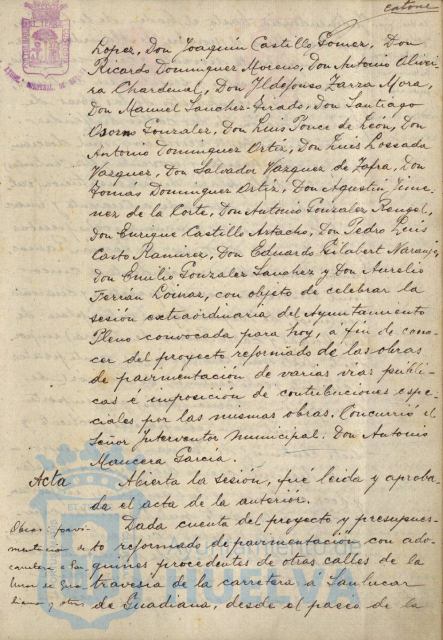 catorce
Lopez, Don Joaquín Castillo Gomez, Don
Ricardo Dominguez Moreno, Don Antonio Olivei-
ra Chardenal, Don Ildefonso Zarza Mora,
Don Manuel Sanchez-Girado, Don Santiago
Osorno Gonzalez, Don Luis Ponce de León, Don
Antonio Dominguez Ortiz, Don Luis Lossada
Vazquez, Don Salvador Vazquez de Zafra, Don
Tomás Dominguez Ortiz, Don Agustin Jime-
nez de la Corte, Don Antonio Gonzalez Rengel,
Don Enrique Castillo Artacho, Don Pedro Luis
Casto Ramirez, Don Eduardo Gilabert Naranjo,
Don Emilio Gonzalez Sanchez y Don Aurelio
Ferrán, con objeto de celebrar la
sesión extraordinaria del Ayuntamiento
Pleno convocada para hoy, á fin de cono-
cer del proyecto reformado de las obras
de pavimentación de varias vias públi-
cas é imposición de contribuciones espe-
ciales por las mismas obras. Concurrió el
Señor Interventor Municipal. Don Antonio
Mancera García.
Acta
Abierta la sesión, fué leida y aproba-
da el acta de la anterior.
Obras pavi-
mentación de
carretera á San
lucar de Gua
diana y otras
Dada cuenta del proyecto y presupues-
to reformado de pavimentación con ado-
quines procedentes de otras calles de la
travesia de la carretera á Sanlucar
de Guadiana, desde el paseo de la
Ayuntamiento de
HUELVA